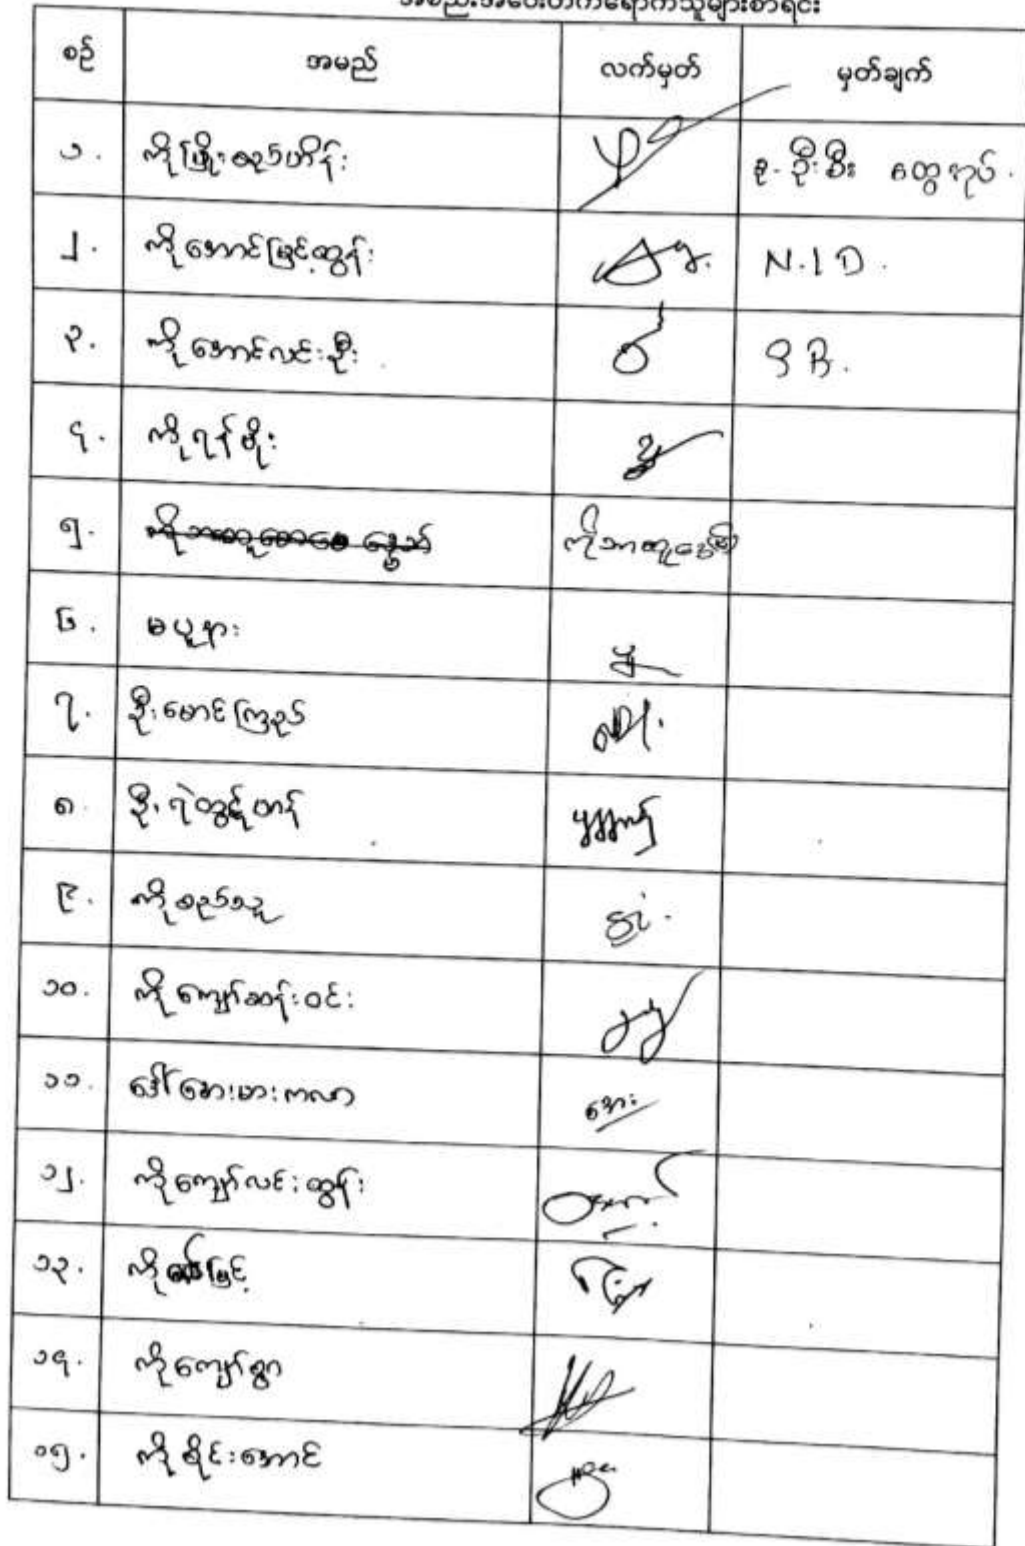 အစည်းအဝေးတက်ရောက်သူများစာရင်း
စဉ် အမည် လက်မှတ် မှတ်ချက်
၁. ကိုဖြိုးသုဒ်ဟိန်း ဒု-ဦးစီး ထွေအုပ်.
၂. ကိုအောင်မြင့်ထွန်း N.I D.
၃. ကိုအောင်လင်းဦး S B.
၄. ကိုရန်မိုး
၅.
၆. မပူနား
၇. ဦးမောင်ကြည်
၈. ဦးရဲထွဋ်တန်
၉. ကိုစည်သူ
၁၀. ကိုကျော်ဆန်းဝင်း
၁၁. ဒေါ်အေးမားကလာ အေး
၁၂. ကိုကျော်လင်းထွန်း
၁၃. ကို မြင့်
၁၄. ကိုကျော်စွာ
၁၅. ကိုစိုင်းအောင်